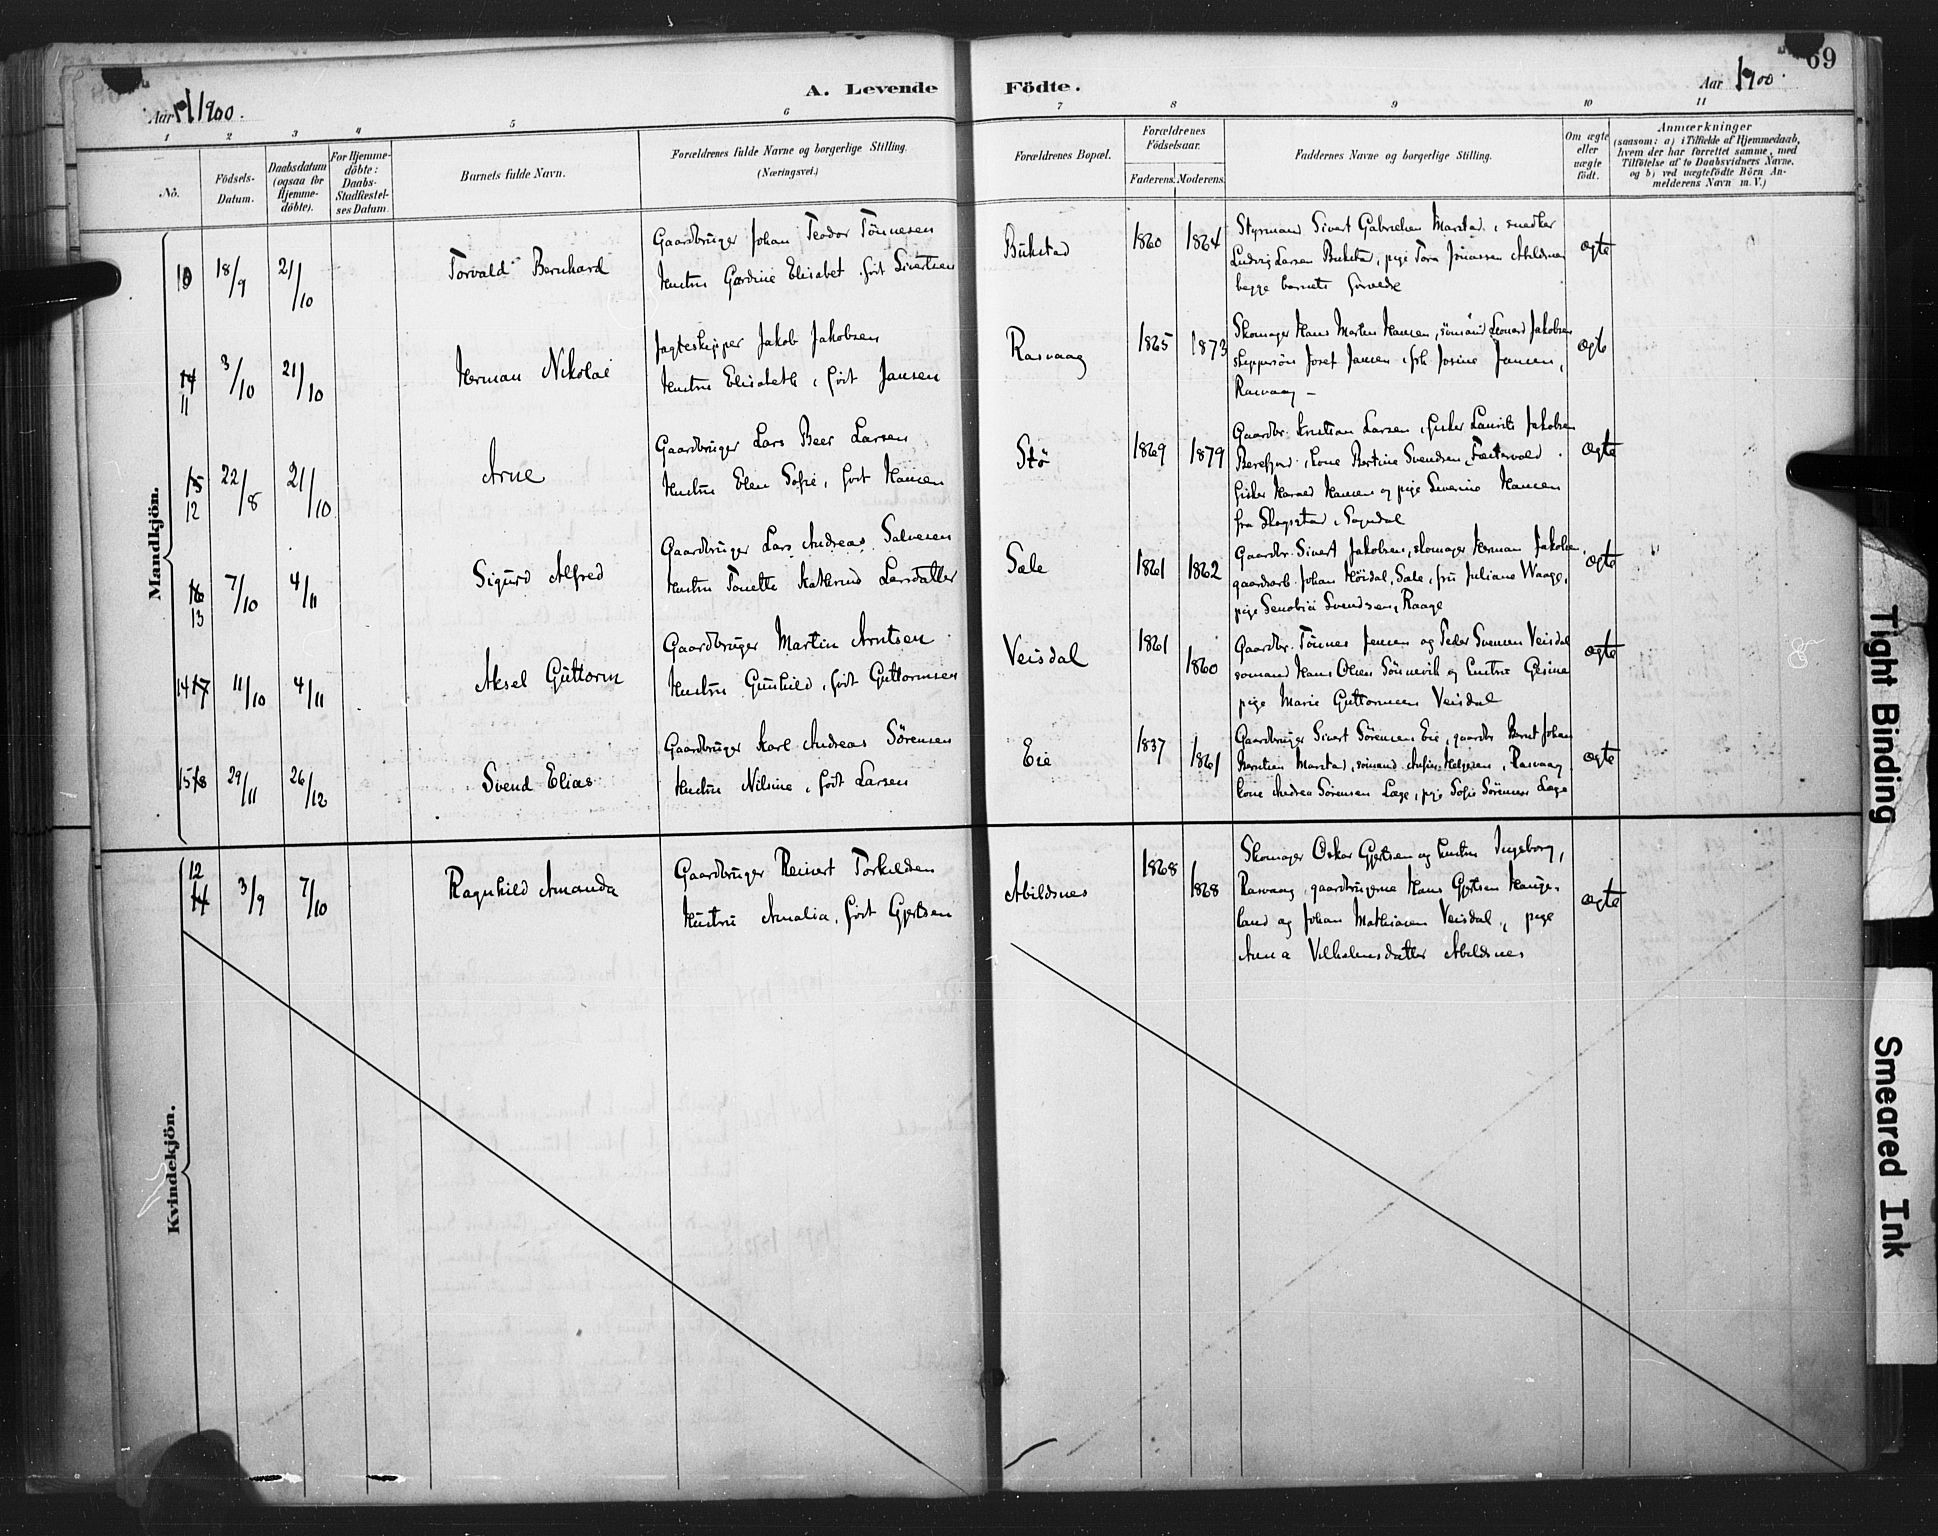 69
Aar 1900.
A. Levende
Födte.
Aar 1900.
1 2 3 4 5 6 7 8 9 10 11
No.
Födsels-
Datum.
Daabsdatum
(ogsaa for
Hjemme-
döbte).
For Hjemme-
döbte:
Daabs-
Stadfæstel-
ses Datum.
Barnets fulde Navn.
Forældrenes fulde Navne og borgerlige Stilling.
(Næringsvei.)
Forældrenes Bopæl.
Forældrenes
Födselsaar.
Faderens. Moderens.
Faddernes Navne og borgerlige Stilling.
Om ægte
eller
uægte
födt.
Anmærkninger
(saasom: a) i Tilfælde af Hjemmedaab,
hvem der har forrettet samme, med
Tilföielse af to Daabsvidners Navne,
og b) ved uægtefödte Börn An-
melderens Navn m. V.)
Mandkjön.
10 18/9 21/10
Torvald Bernhard
Gaardbruger Johan Teodor Tönnesen
Hustru Gardine Elisabet født Sivertsen
Bukstad
1860 1864
Styrmand Sivert Gabrielsen Marstad, snedker
Ludvig Larsen Bukstad, pige Tora Jonassen Abildsnes
begge barnets forældre
ægte
14
11
3/10 21/10
Herman Nikolai
Jagteskipper Jakob Jakobsen
Hustru Elisabeth, født Jansen
Rasvaag
1865 1873
Skomager Hans Martin Hansen, sömand Leonard Jakobsen
skippersön Josef Jansen, frk Josine Jansen,
Rasvaag –
ægte
15
12
22/8 21/10
Arne
Gaardbruger Lars Beer Larsen
Hustru Elen Sofie, født Hansen
Stö
1869 1879
Gaardbr. Kristian Larsen, fisker Laurits Jakobsen
Berefjord, kone Bertine Svendsen,
fisker Harald Hansen og pige Severine Hansen
fra Skogestad i Sogndal
ægte
16
13
7/10 4/11
Sigurd Alfred
Gaardbruger Lars Andreas Salvesen
Hustru Tonette Kathrine Larsdatter
Sæle
1861 1862
Gaardbr. Sivert Jakobsen, skomager Herman Jakobsen,
gaardsarb. Johan Höisdal, Sæle, fru Juliane Waage,
pige Senobie Svendsen, Raage
ægte
14 17 11/10 4/11
Aksel Guttorm
Gaardbruger Martin Arntsen
Hustru Gunhild, født Guttormsen
Veisdal
1861 1860
Gaardbr. Tönnes Jensen og Peder Svensen Veisdal
sömand Hans Olsen Sönnevik og hustru Gesine
pige Marie Guttormsen Veisdal
ægte
15 18 29/11 26/12
Svend Elias
Gaardbruger Karl Andreas Sörensen
Hustru Nilsine, født Larsen
Eie
1837 1861
Gaardbruger Sivert Sörensen Eie, gaardbr Bernt Johan
Berntsen Marstad, sömand Helgesen, Rasvaag
kone Andrea Sörensen Læge, pige Sofie Sörensen Læge
ægte
Kvindekjön.
12
14
3/9 7/10
Ragnhild Amanda
Gaardbruger Reinert Torkildsen
Hustru Amalia, født Gjertsen
Abildsnes
1868 1868
Skomager Oskar Gjertsen og hustru Ingeborg,
Rasvaag, gaardbrugerne Hans Gjertsen Hauge-
land og Johan Mathiasen Veisdal, pige
Anna Vilhelmsdatter Abildsnes
ægte
Tight Binding
Smeared Ink